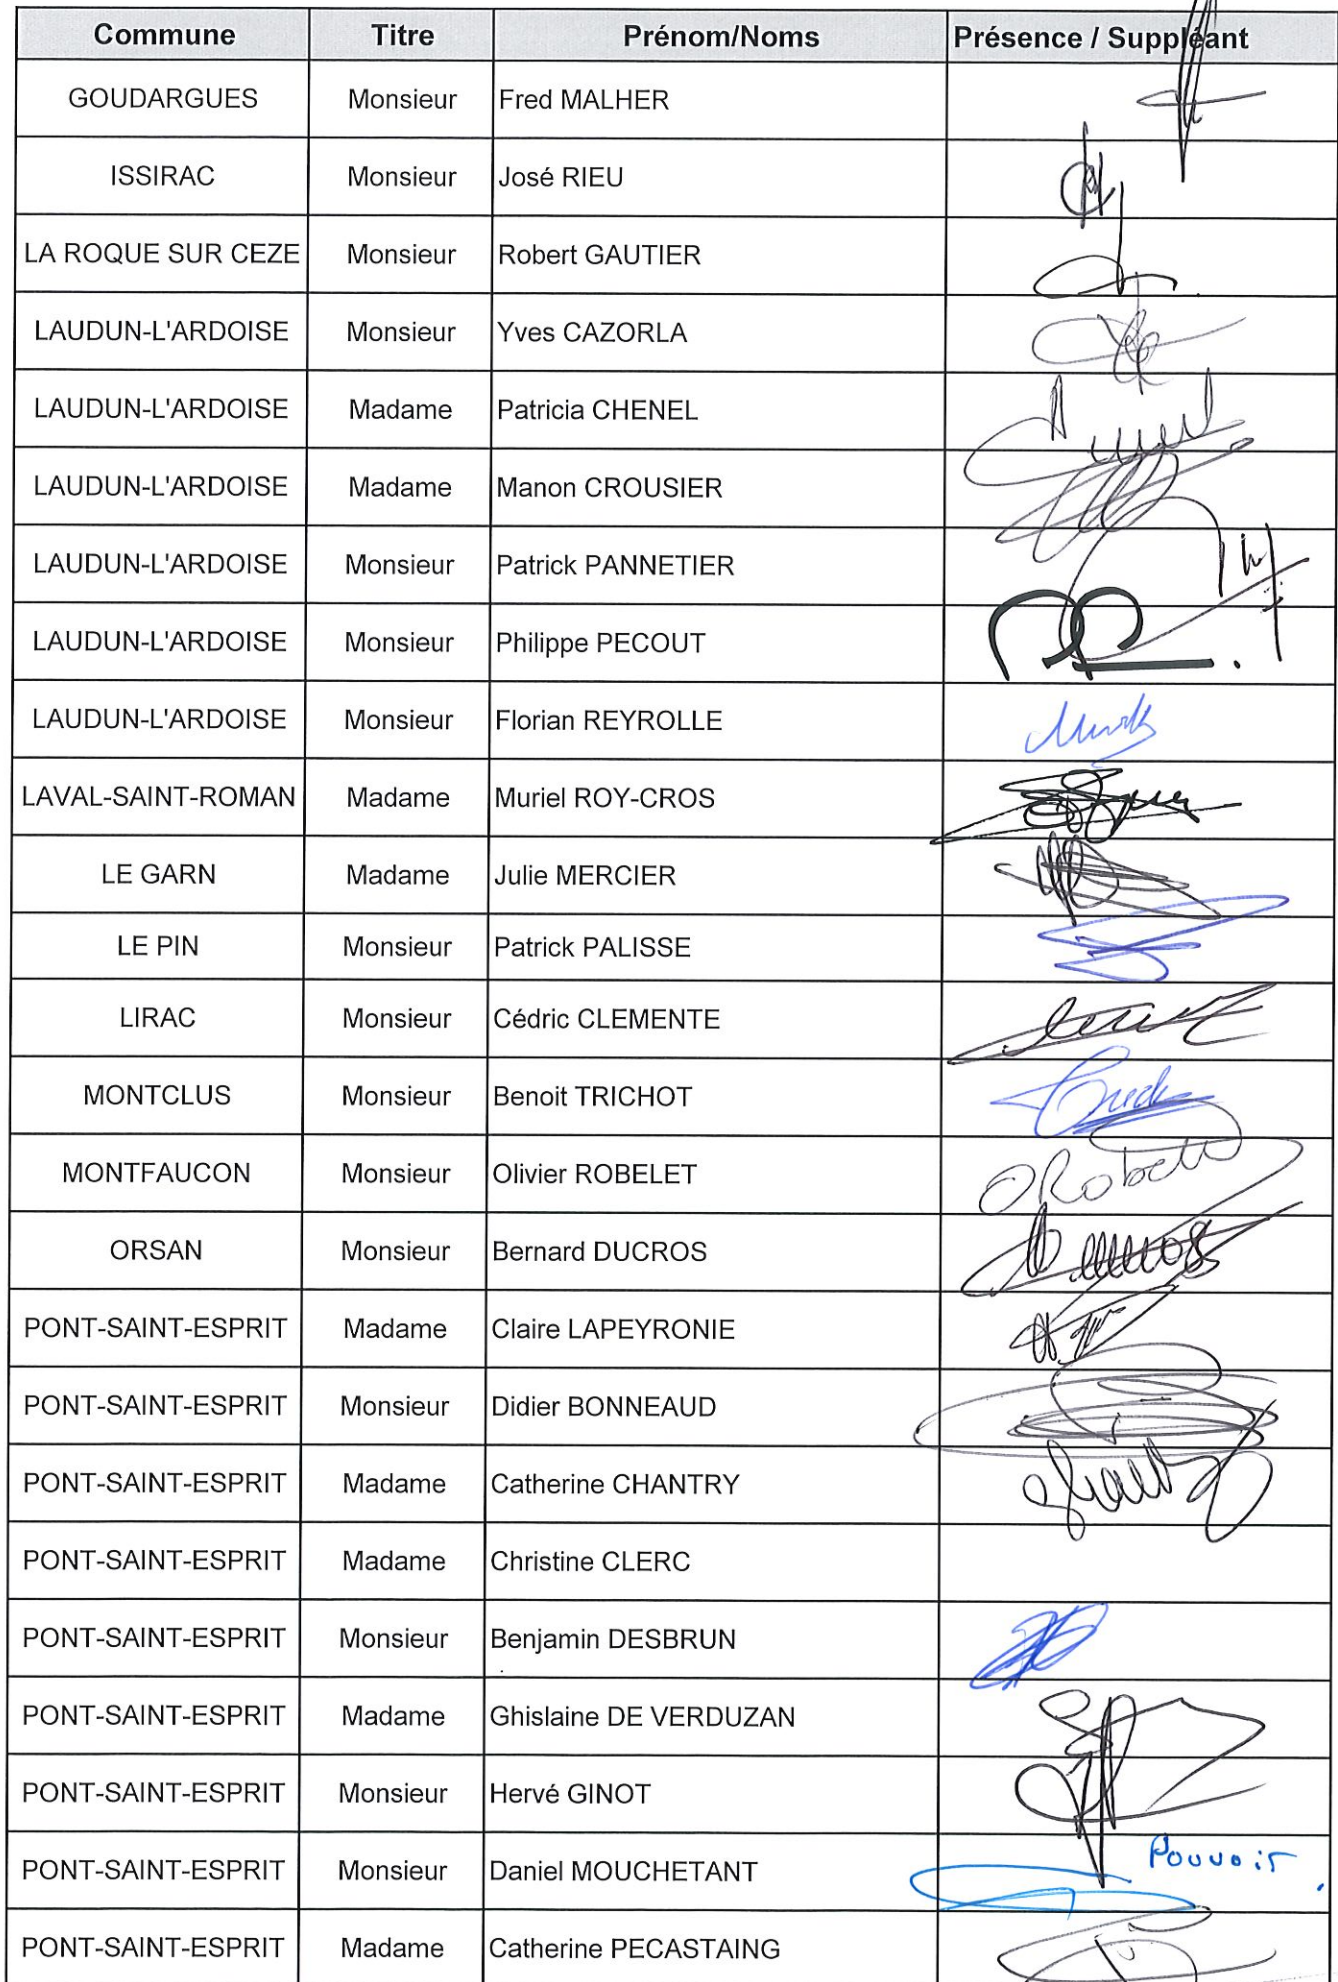 Commune Titre Prénom/Noms Présence / Suppléant
GOUDARGUES Monsieur Fred MALHER
ISSIRAC Monsieur José RIEU
LA ROQUE SUR CEZE Monsieur Robert GAUTIER
LAUDUN-L'ARDOISE Monsieur Yves CAZORLA
LAUDUN-L'ARDOISE Madame Patricia CHENEL
LAUDUN-L'ARDOISE Madame Manon CROUSIER
LAUDUN-L'ARDOISE Monsieur Patrick PANNETIER
LAUDUN-L'ARDOISE Monsieur Philippe PECOUT
LAUDUN-L'ARDOISE Monsieur Florian REYROLLE
LAVAL-SAINT-ROMAN Madame Muriel ROY-CROS
LE GARN Madame Julie MERCIER
LE PIN Monsieur Patrick PALISSE
LIRAC Monsieur Cédric CLEMENTE
MONTCLUS Monsieur Benoit TRICHOT
MONTFAUCON Monsieur Olivier ROBELET
ORSAN Monsieur Bernard DUCROS
PONT-SAINT-ESPRIT Madame Claire LAPEYRONIE
PONT-SAINT-ESPRIT Monsieur Didier BONNEAUD
PONT-SAINT-ESPRIT Madame Catherine CHANTRY
PONT-SAINT-ESPRIT Madame Christine CLERC
PONT-SAINT-ESPRIT Monsieur Benjamin DESBRUN
PONT-SAINT-ESPRIT Madame Ghislaine DE VERDUZAN
PONT-SAINT-ESPRIT Monsieur Hervé GINOT
PONT-SAINT-ESPRIT Monsieur Daniel MOUCHETANT Pouvoir
PONT-SAINT-ESPRIT Madame Catherine PECASTAING